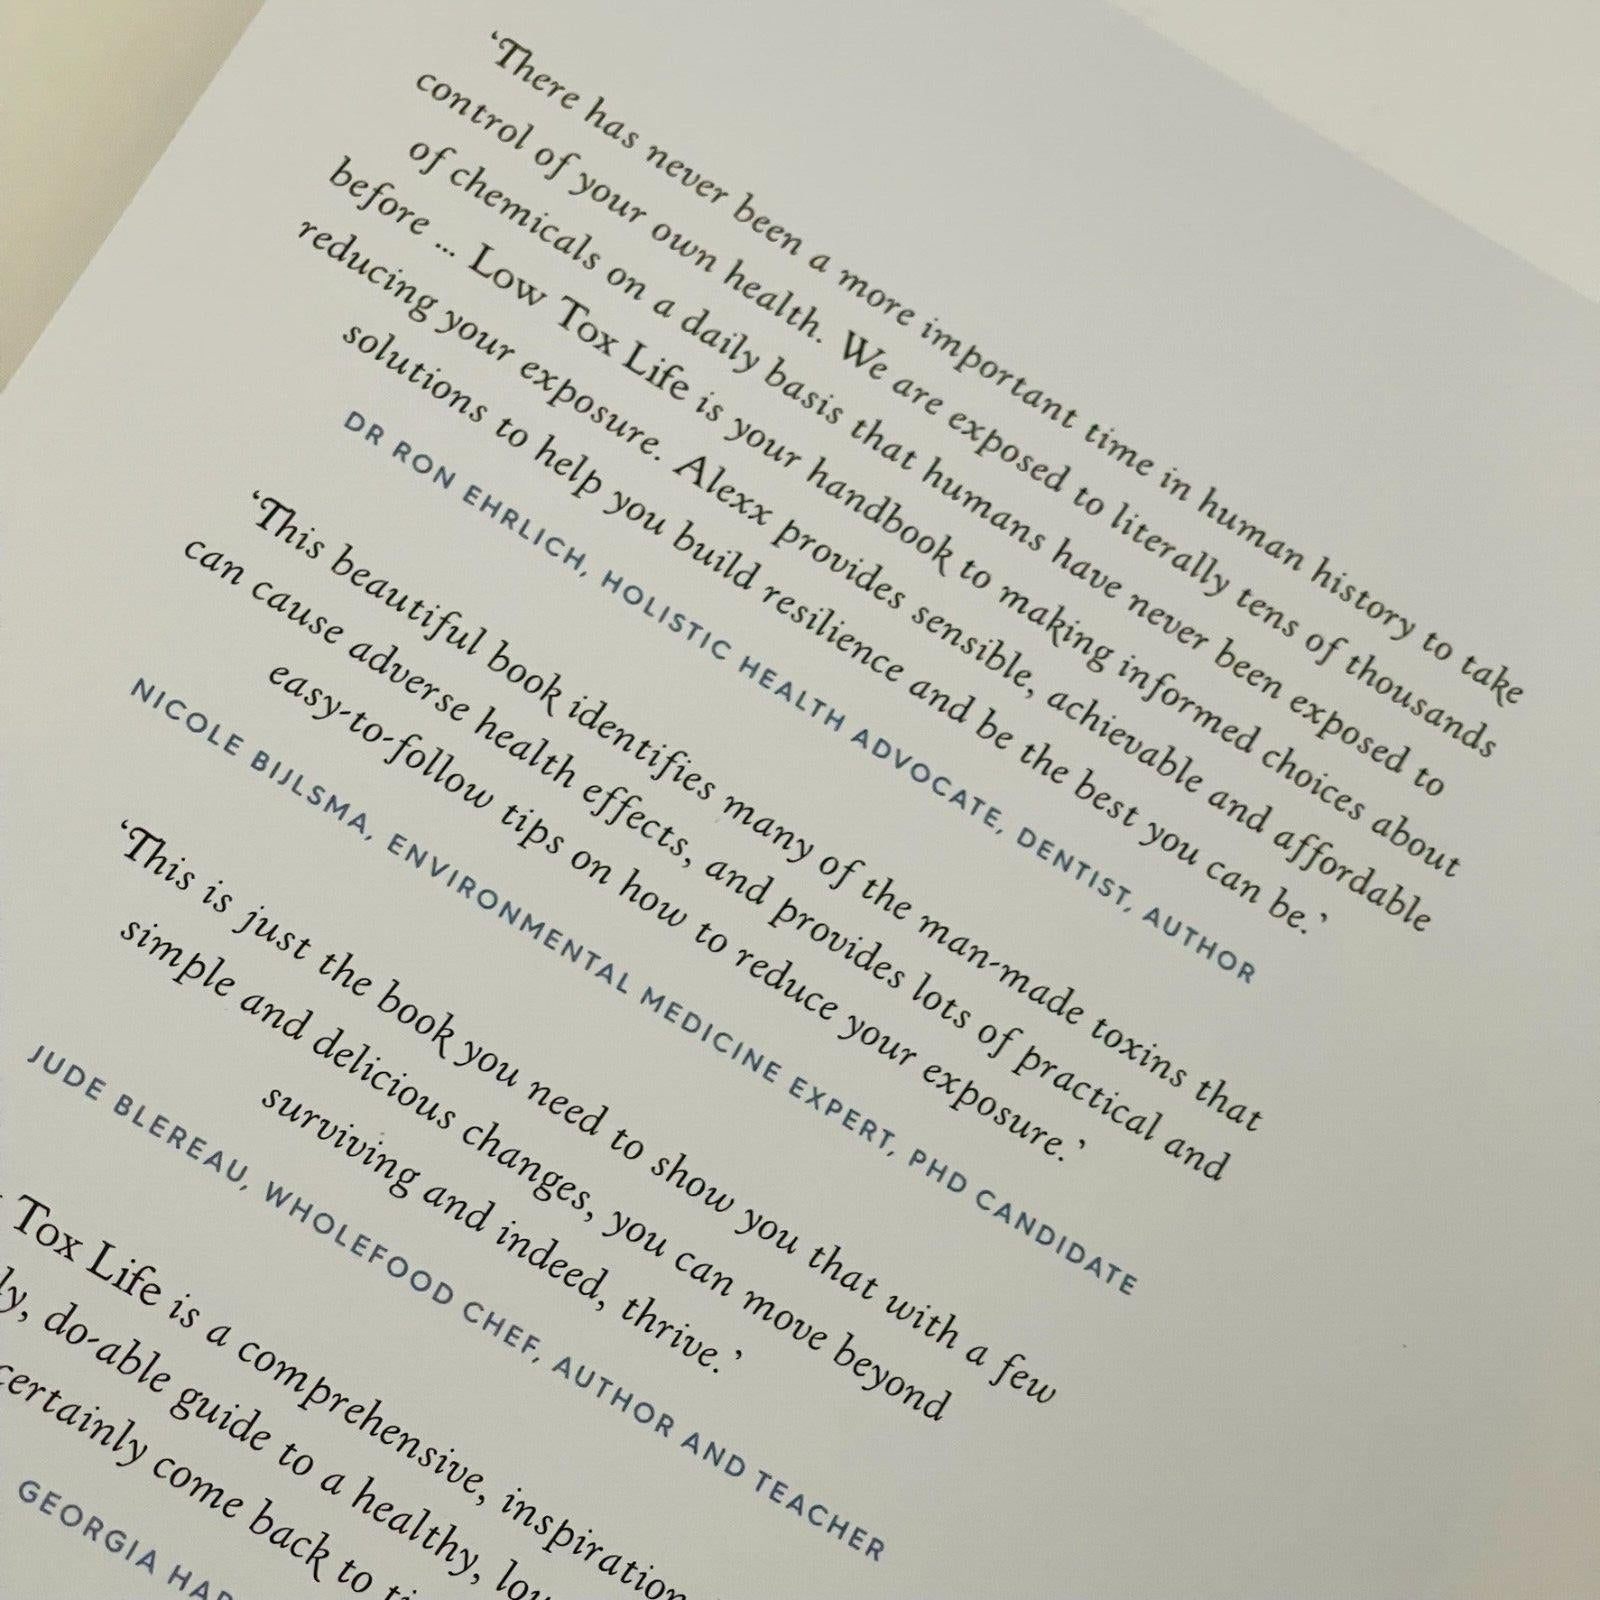 ‘There has never been a more important time in human history to take
control of your own health. We are exposed to literally tens of thousands
of chemicals on a daily basis that humans have never been exposed to
before ... Low Tox Life is your handbook to making informed choices about
reducing your exposure. Alexx provides sensible, achievable and affordable
solutions to help you build resilience and be the best you can be.’
DR RON EHRLICH, HOLISTIC HEALTH ADVOCATE, DENTIST, AUTHOR
‘This beautiful book identifies many of the man-made toxins that
can cause adverse health effects, and provides lots of practical and
easy-to-follow tips on how to reduce your exposure.’
NICOLE BIJLSMA, ENVIRONMENTAL MEDICINE EXPERT, PHD CANDIDATE
‘This is just the book you need to show you that with a few
simple and delicious changes, you can move beyond
surviving and indeed, thrive.’
JUDE BLEREAU, WHOLEFOOD CHEF, AUTHOR AND TEACHER
Tox Life is a comprehensive,
do-able guide to a healthy,
certainly come back to
GEORGIA